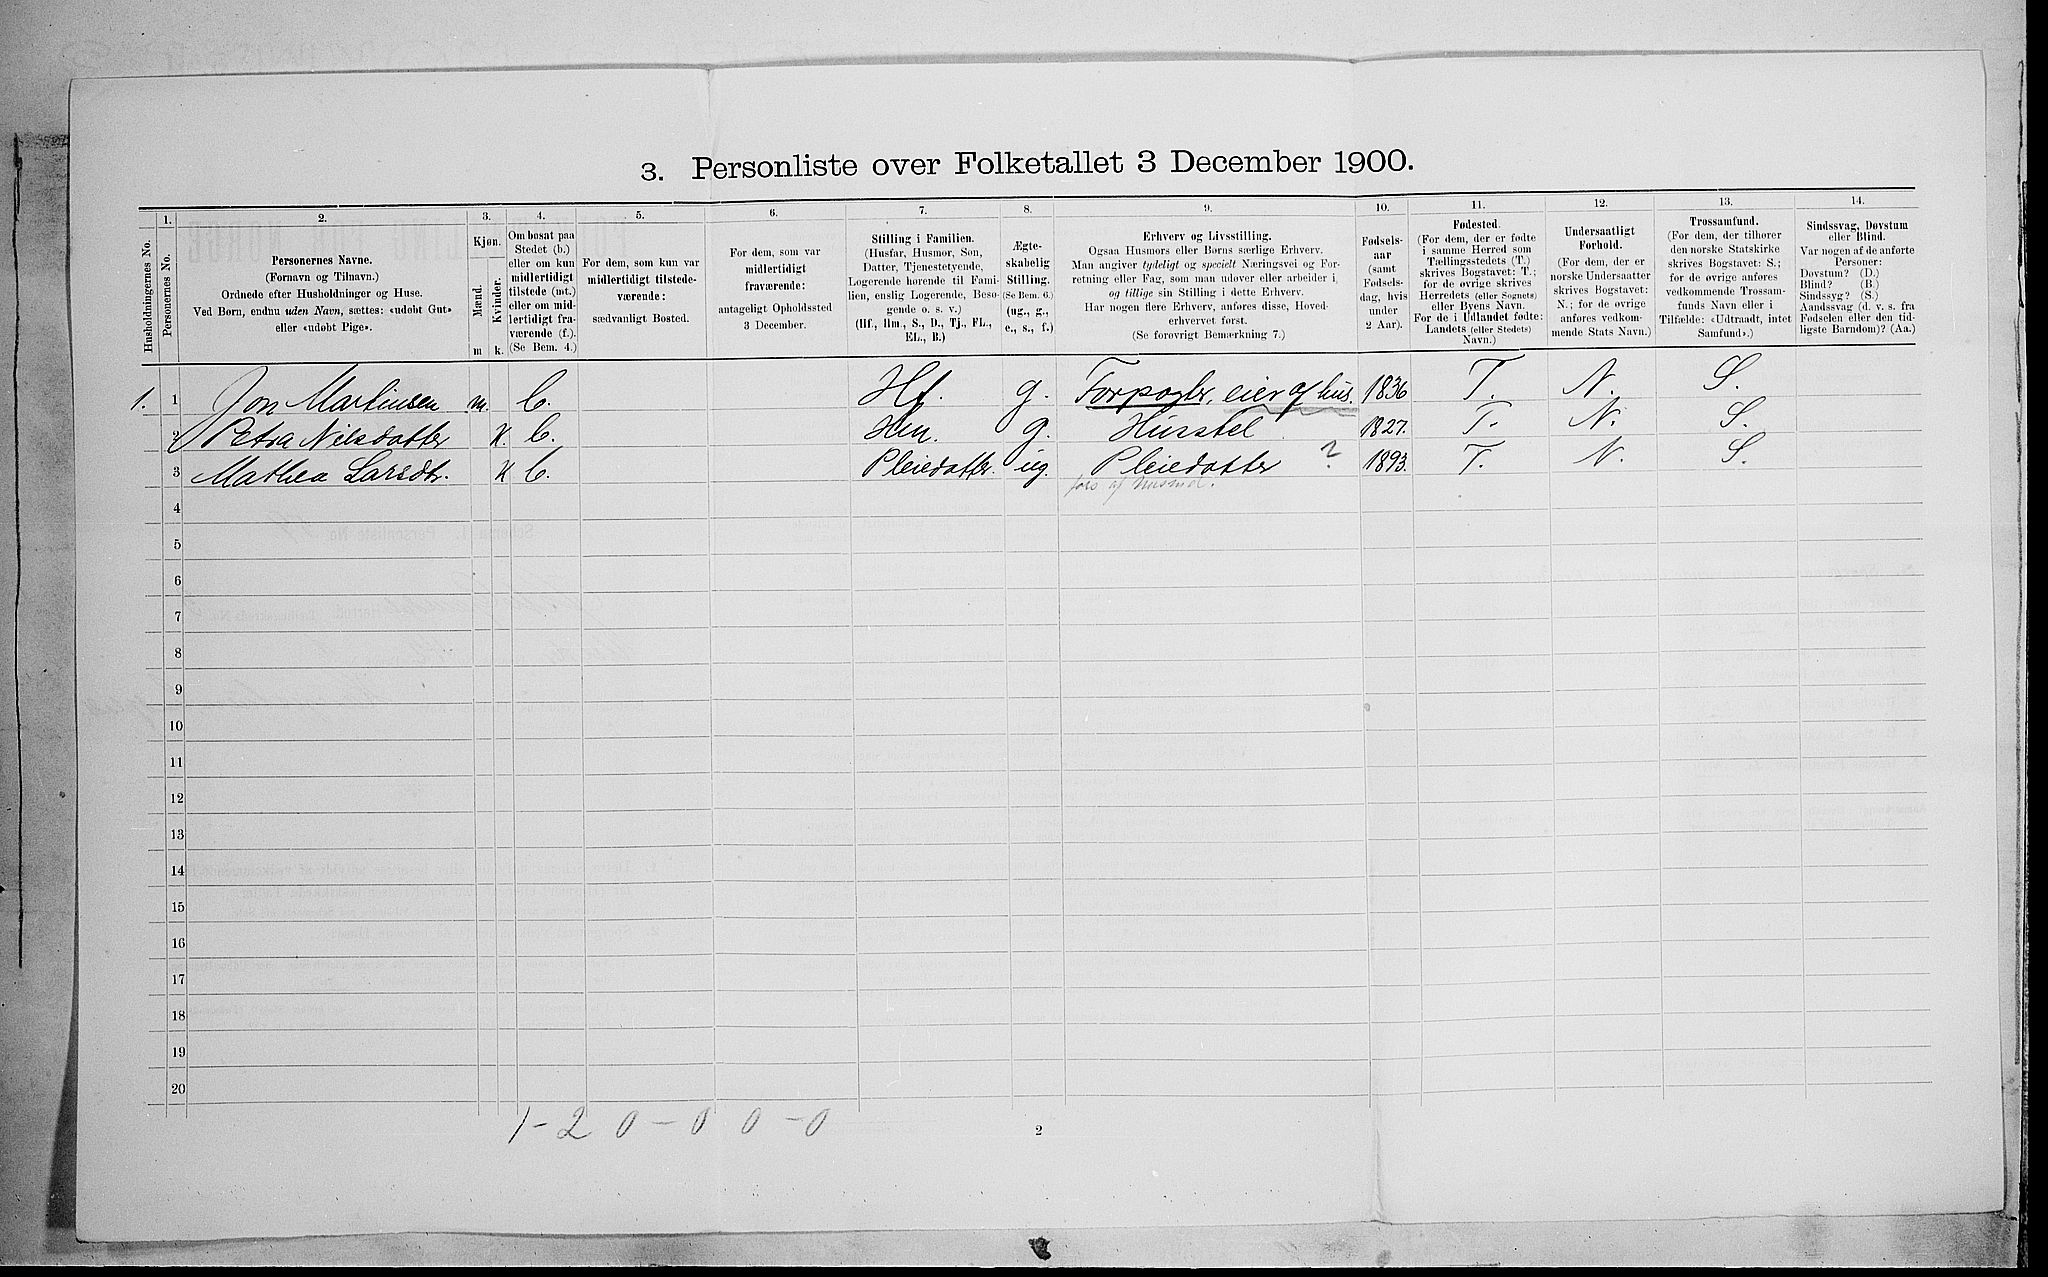 3. Personliste over Folketallet 3 December 1900.
Husholdningernes No.
1.
Personernes No.
2.
Personernes Navne.
(Fornavn og Tilnavn.)
Ordnede efter Husholdninger og Huse.
Ved Børn, endnu uden Navn, sættes: «udøbt Gut»
eller «udøbt Pige».
3.
Kjøn.
Mænd.
Kvinder.
m
k.
4.
Om bosat paa
Stedet (b.)
eller om kun
midlertidigt
tilstede (mt.)
eller om mid-
lertidigt fra-
værende (f.).
(Se Bem. 4.)
5.
For dem, som kun var
midlertidigt tilstede-
værende:
sædvanligt Bosted.
6.
For dem, som var
midlertidigt
fraværende:
antageligt Opholdssted
3 December.
7.
Stilling i Familien.
(Husfar, Husmor, Søn,
Datter, Tjenestetyende,
Logerende hørende til Fami-
lien, enslig Logerende, Besø-
gende o. s. v.)
(Hf., Hm., S., D., Tj., FL.,
EL., B.)
8.
Ægte-
skabelig
Stilling.
(Se Bem. 6.)
(ug., g.,
e., s., f.)
9.
Erhverv og Livsstilling.
Ogsaa Husmors eller Børns særlige Erhverv.
Man angiver tydeligt og specielt Næringsvei og For-
retning eller Fag, som man udøver eller arbeider i,
og tillige sin Stilling i dette Erhverv.
Har nogen flere Erhverv, anføres disse, Hoved-
erhvervet først.
(Se forøvrigt Bemærkning 7.)
10.
Fødsels-
aar
(samt
Fødsels-
dag, hvis
under
2 Aar).
11.
Fødested.
(For dem, der er fødte
i samme Herred som
Tællingsstedets (T.)
skrives Bogstavet: T.;
for de øvrige skrives
Herredets (eller Sognets)
eller Byens Navn.
For de i Udlandet fødte:
Landets (eller Stedets)
Navn.)
12.
Undersaatligt
Forhold.
(For dem, der er
norske Undersaatter
skrives Bogstavet:
N.; for de øvrige
anføres vedkom-
mende Stats Navn.)
13.
Trossamfund.
(For dem, der tilhører
den norske Statskirke
skrives Bogstavet: S.;
for de øvrige anføres
vedkommende Trossam-
funds Navn eller i
Tilfælde: «Udtraadt, intet
Samfund».)
14.
Sindssvag, Døvstum
eller Blind.
Var nogen af de anførte
Personer:
Døvstum? (D.)
Blind? (B.)
Sindssyg? (S.)
Aandssvag (d. v. s. fra
Fødselen eller den tid-
ligste Barndom)? (Aa.)
1. 1 Jon Martinsen m. b. Hf. g. Forpagter, eier af hus. 1836 T. N. S.
2 Petra Nilsdatter k. b. Hm. g. Husstel 1827. T. N. S.
3 Mathea Larsdtr. k b. Pleiedatter. ug. Pleiedatter ? 1893. T. N. S.
fors af husmd.
4
5
6
7
8
9
10
11
12
13
14
15
16
17
18
19
20
1 - 2 0 - 0 0 - 0
2